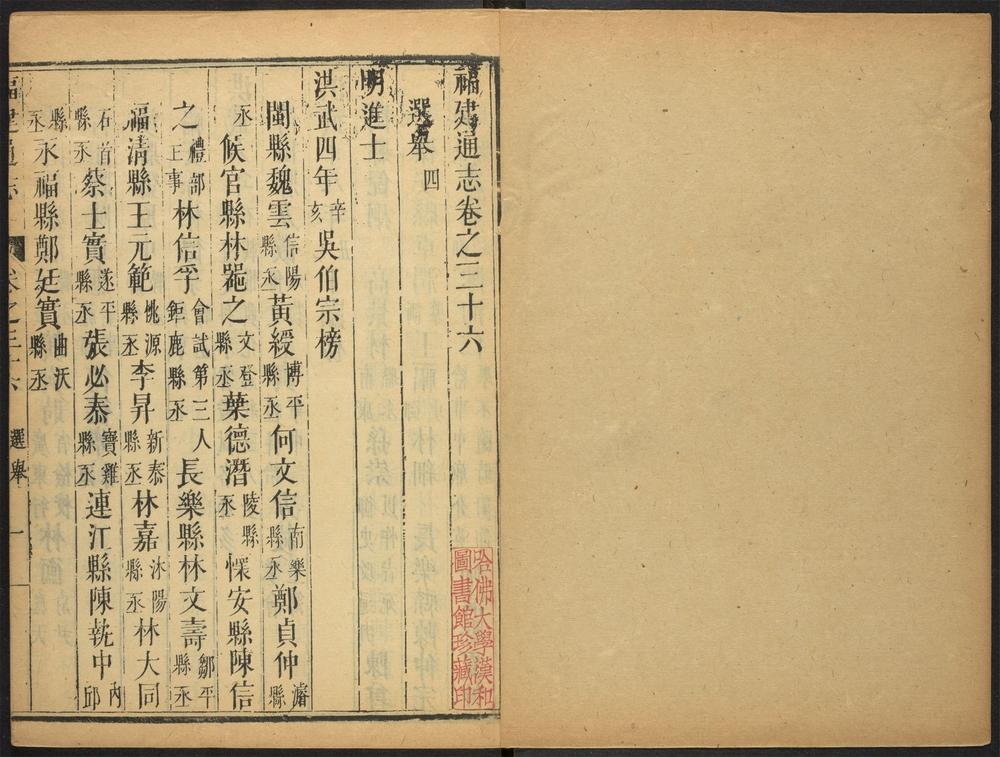 福建通志卷之三十六
選舉四
明進士
洪武四年辛亥吳伯宗榜
閩縣魏雲信陽縣丞黃綬博平縣丞何文信南樂縣丞鄭貞仲濬縣
丞候官縣林噐之文登縣丞葉德潛陵縣丞懷安縣陳信
之禮部主事林信孚會試第三人鉅鹿縣丞長樂縣林文壽鄒平縣丞
福清縣王元範桃源縣丞李昇新泰縣丞林嘉沐陽縣丞林大同
石首縣丞蔡士實遂平縣丞張必泰寶雞縣丞連江縣陳執中內邱
縣丞永福縣鄭廷實曲沃縣丞
福建通志 卷之三十六 選舉 一
哈佛大學漢和圖書館珍藏印